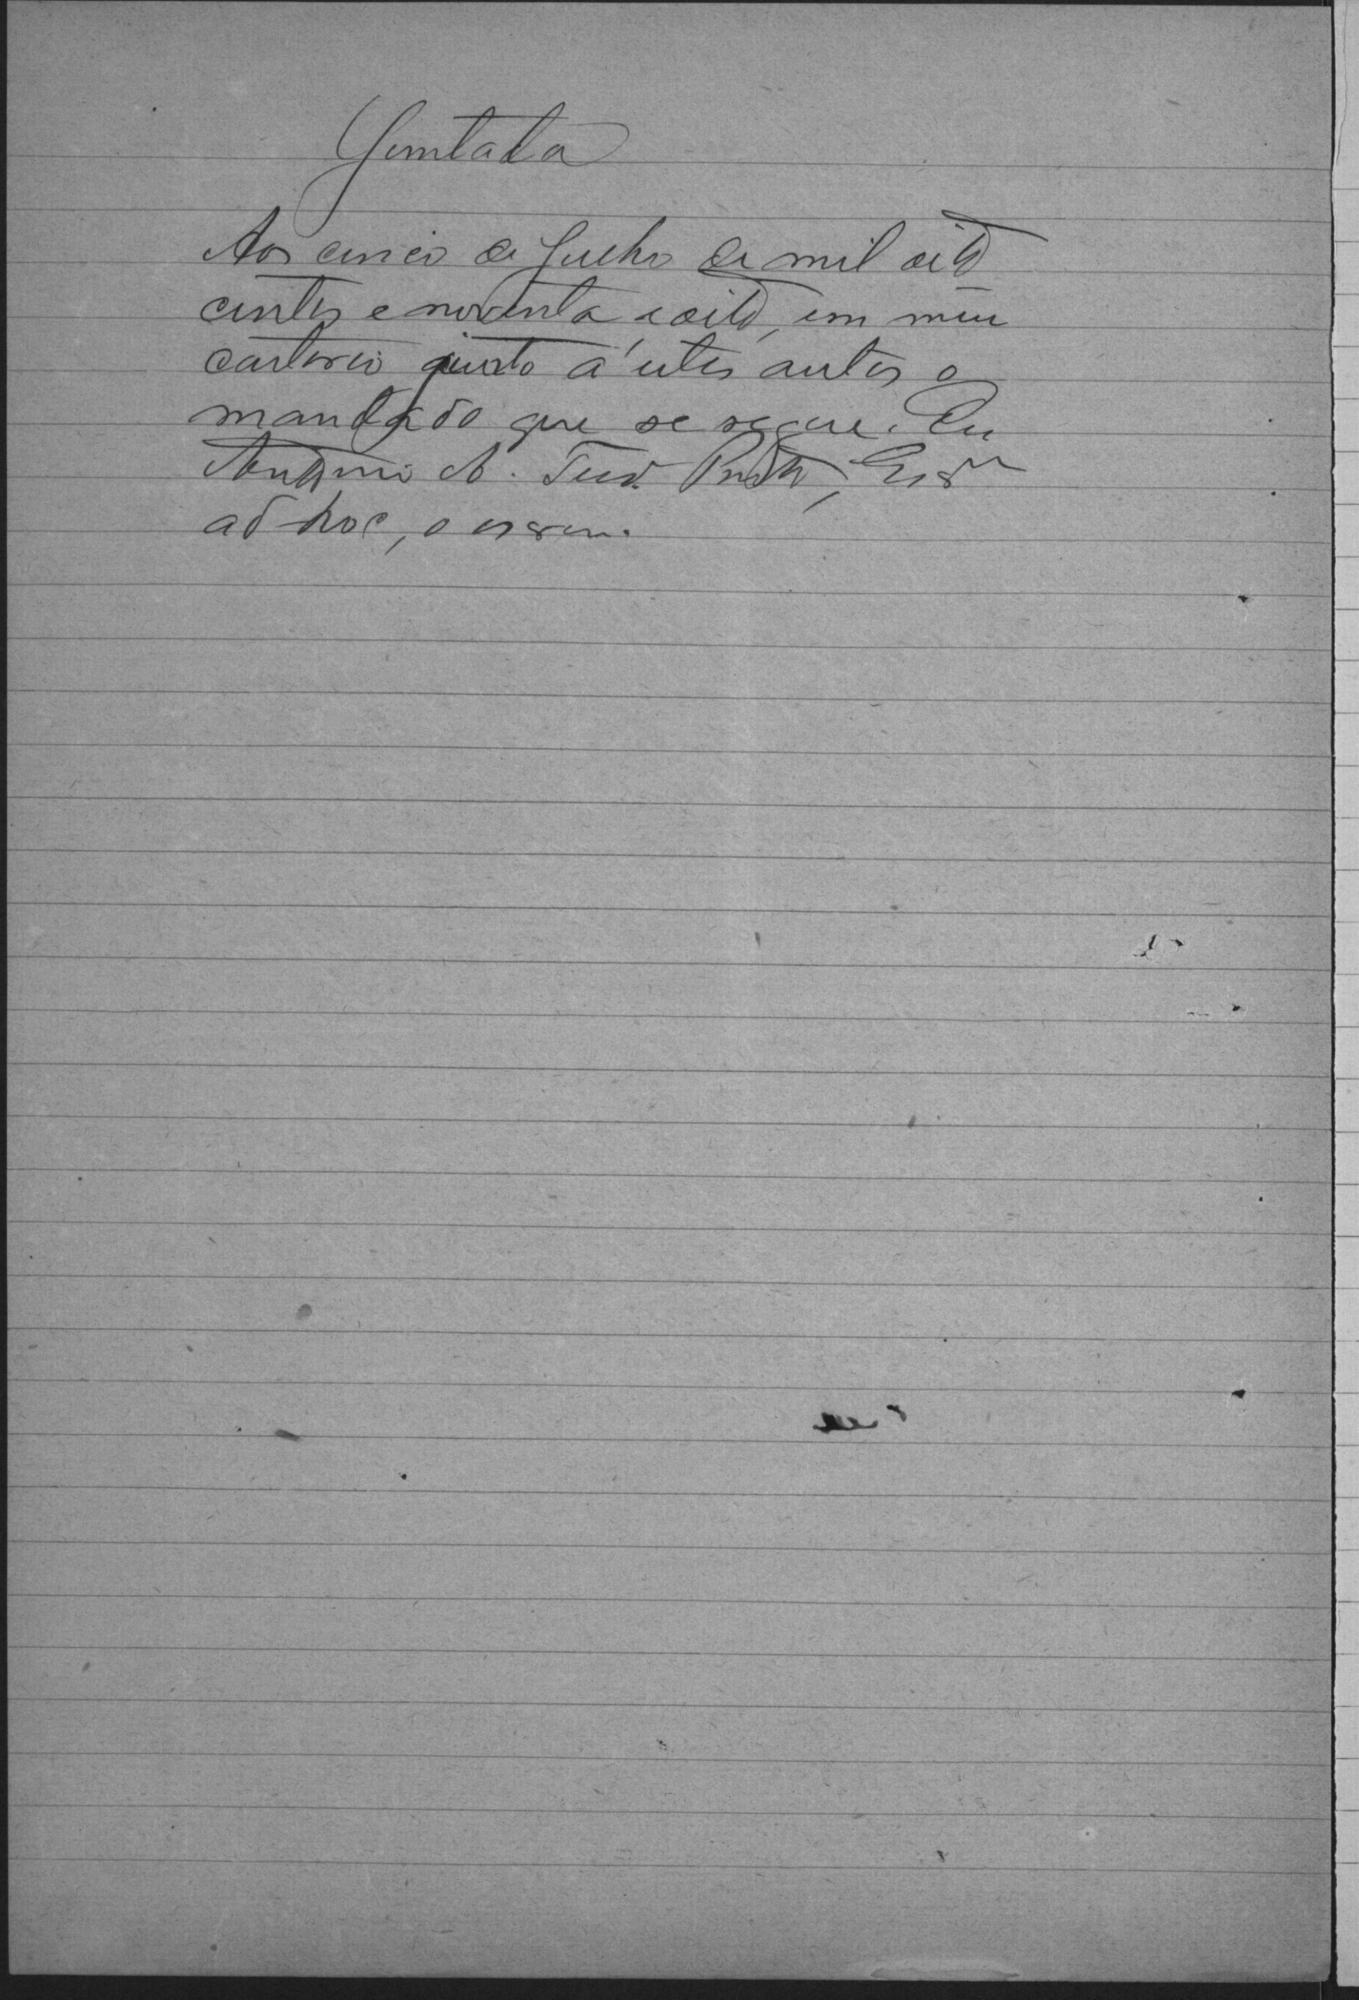 Juntada
Aos cinco de Julho de mil oito
centos e noventa e oito, em meu
cartorio junto á estes autos o
mandado que se segue. Eu
Antonio A. Prito, Escrm
ad-hoc, o escrevi.